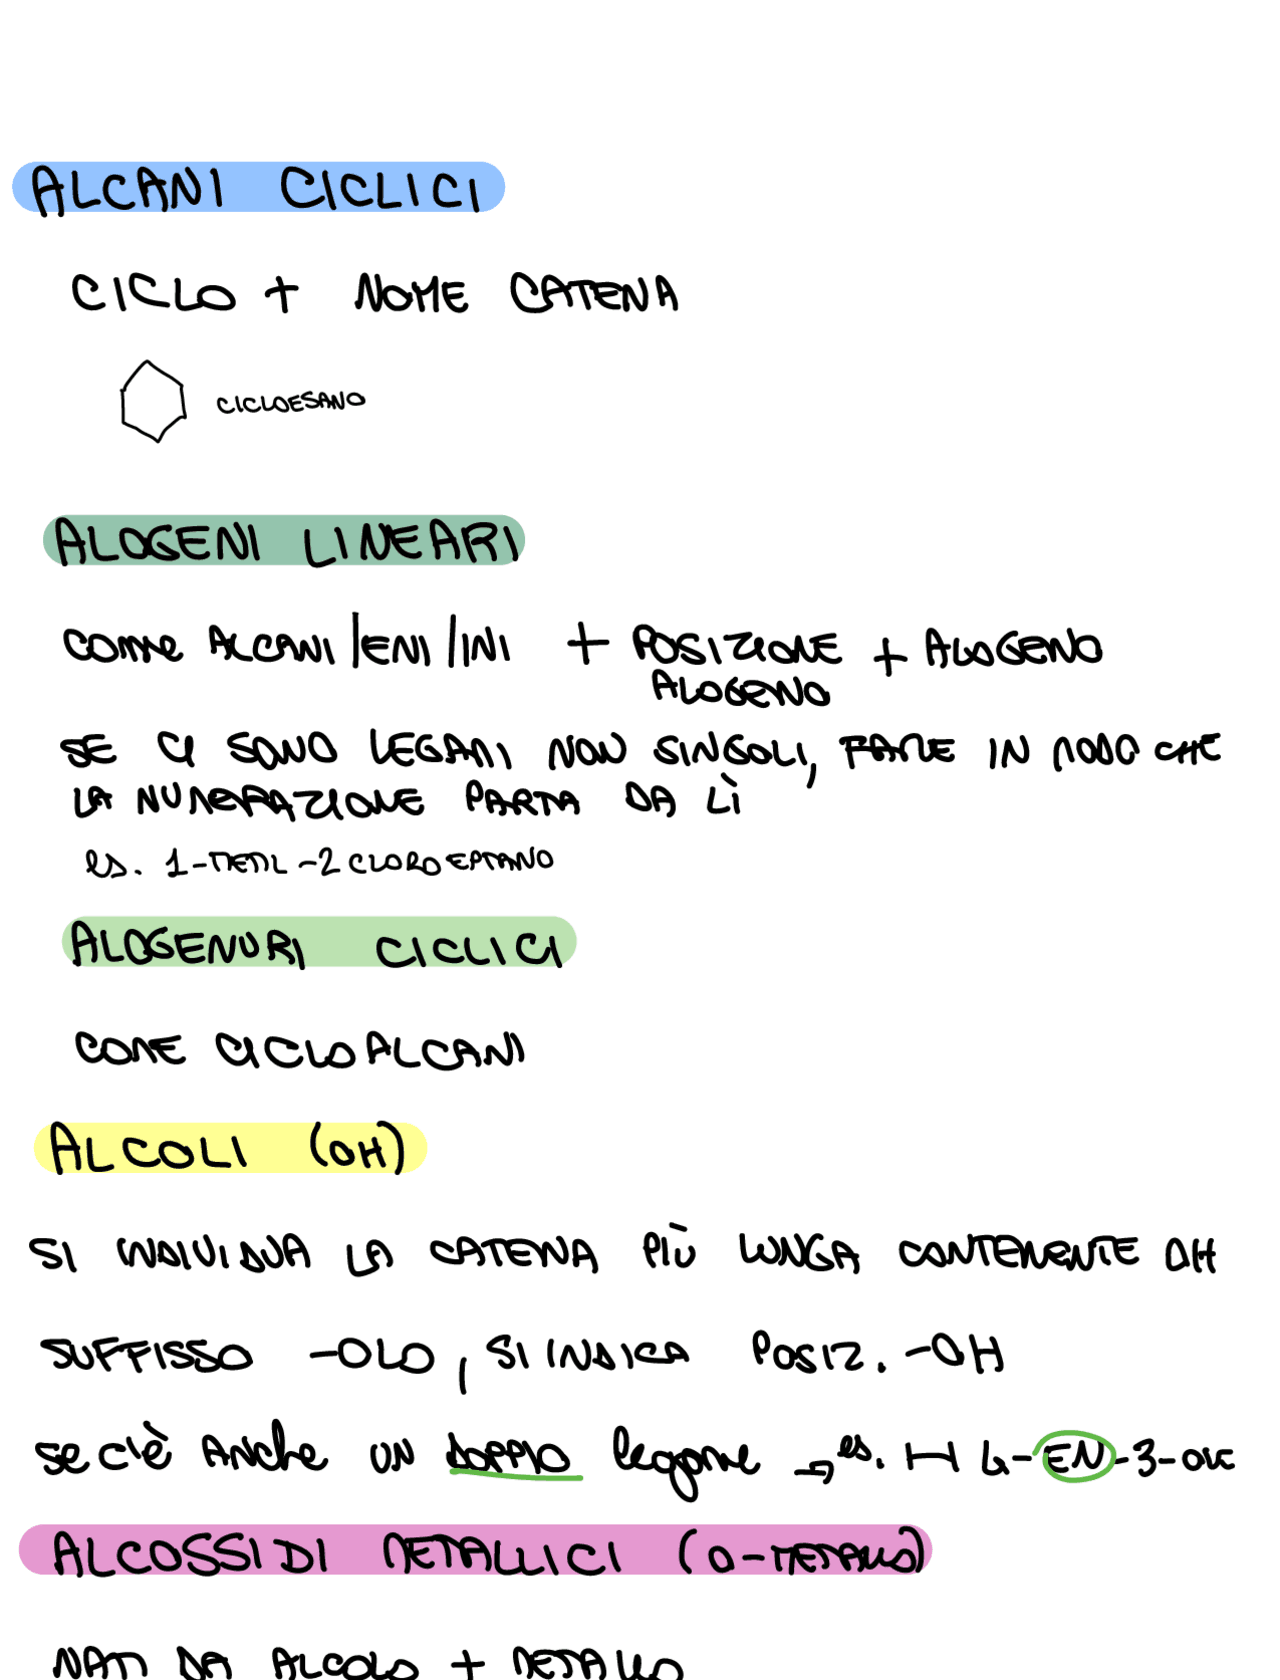 ALCANI CICLICI
CICLO + NOME CATENA
CICLOESANO
ALOGENI LINEARI
COME ALCANI/ENI/INI + POSIZIONE ALOGENO + ALOGENO
SE CI SONO LEGAMI NON SINGOLI, FARE IN MODO CHE
LA NUMERAZIONE PARTA DA LÌ
es. 1-METIL-2 CLORO EPTANO
ALOGENURI CICLICI
COME CICLO ALCANI
ALCOLI (OH)
SI INDIVIDUA LA CATENA PIÙ LUNGA CONTENENTE OH
SUFFISSO -OLO, SI INDICA POSIZ. -OH
se c'è Anche UN DOPPIO legame → es. 4-EN-3-OLO
ALCOSSIDI METALLICI (O-METALLO)
NATI DA ALCOLO + METALLO